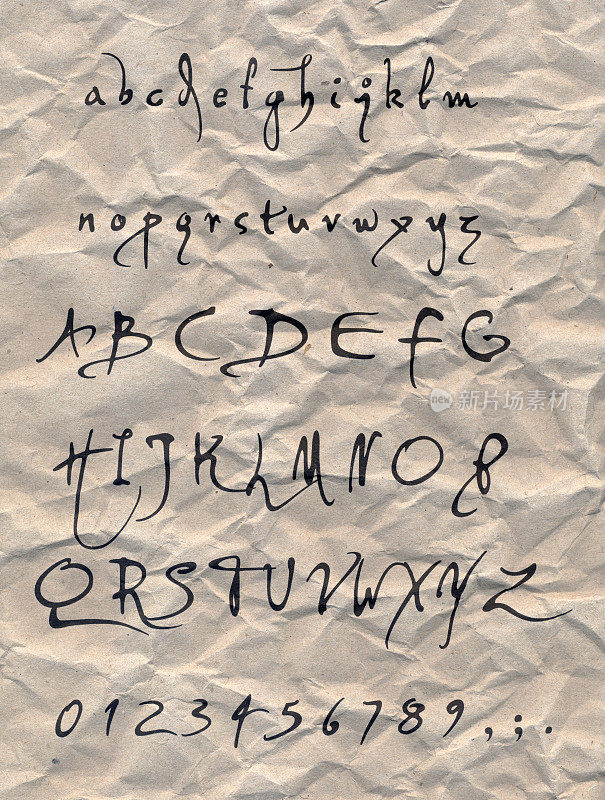 abcdefghijklm
nopqrstuvwxyz
ABCDEFG
new 新片场素材
HIJKLMNOP
QRSTUVWXYZ
0123456789,;.